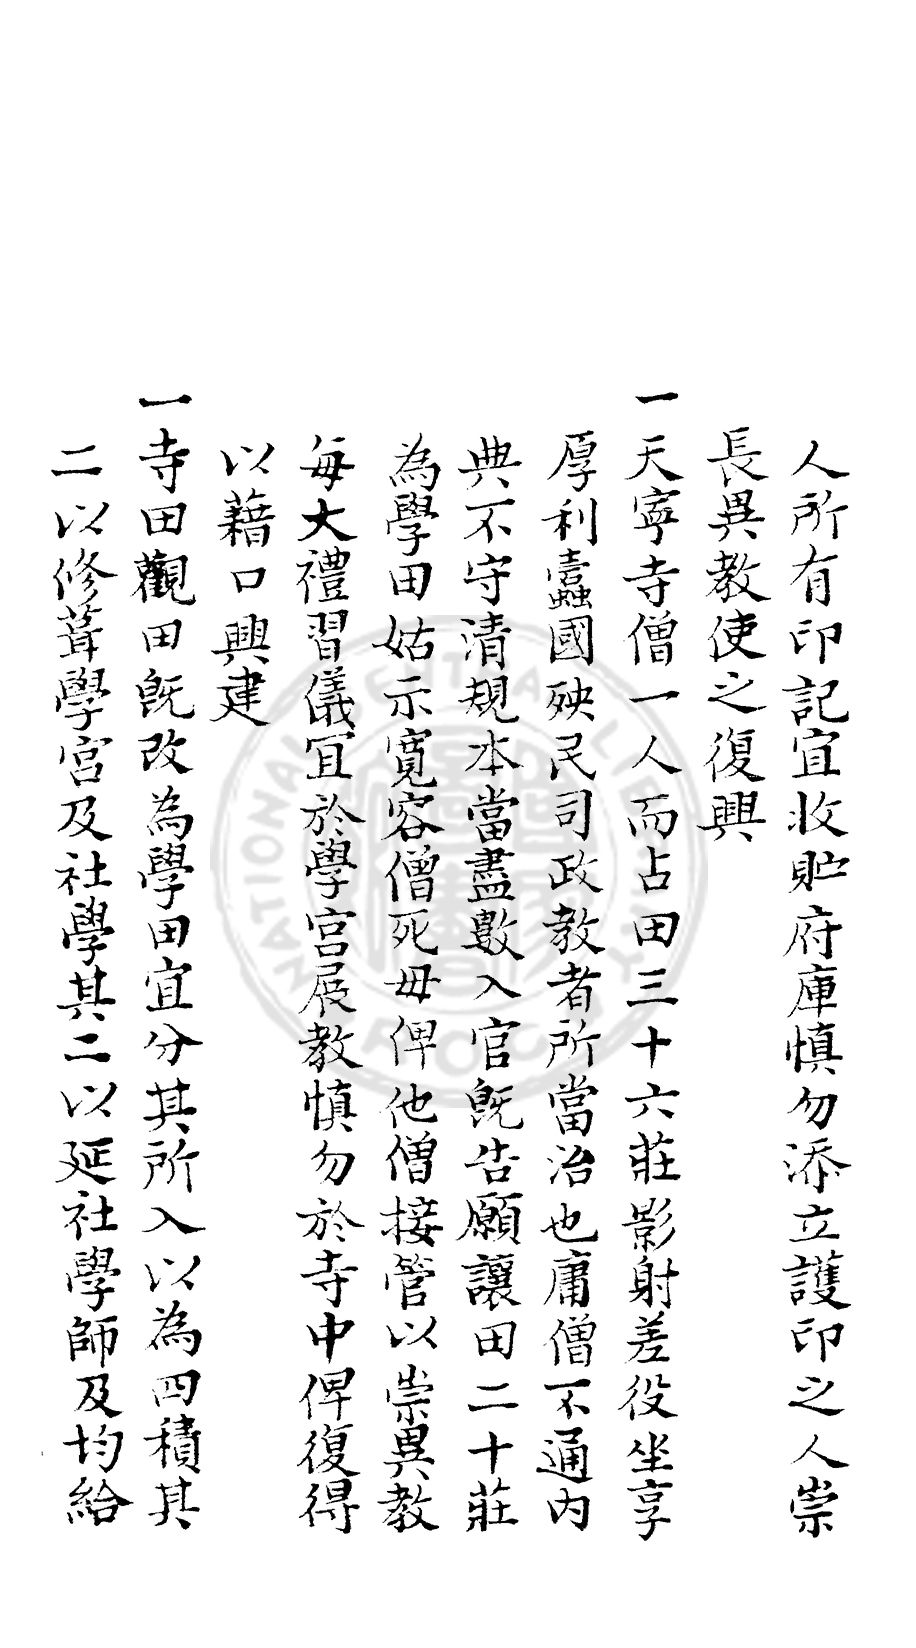 人所有印記宜收貯府庫慎勿添立護印之人崇
長異教使之復興
一天寧寺僧一人而占田三十六莊影射差役坐享
厚利蠹國殃民司政教者所當治也庸僧不通內
典不守清規本當盡數入官既告願讓田二十莊
為學田姑示寬容僧死毋俾他僧接管以崇異教
每大禮習儀宜於學宮展教慎勿於寺中俾復得
以藉口興建
一寺田觀田既改為學田宜分其所入以為四積其
二以修葺學宮及社學其二以延社學師及均給